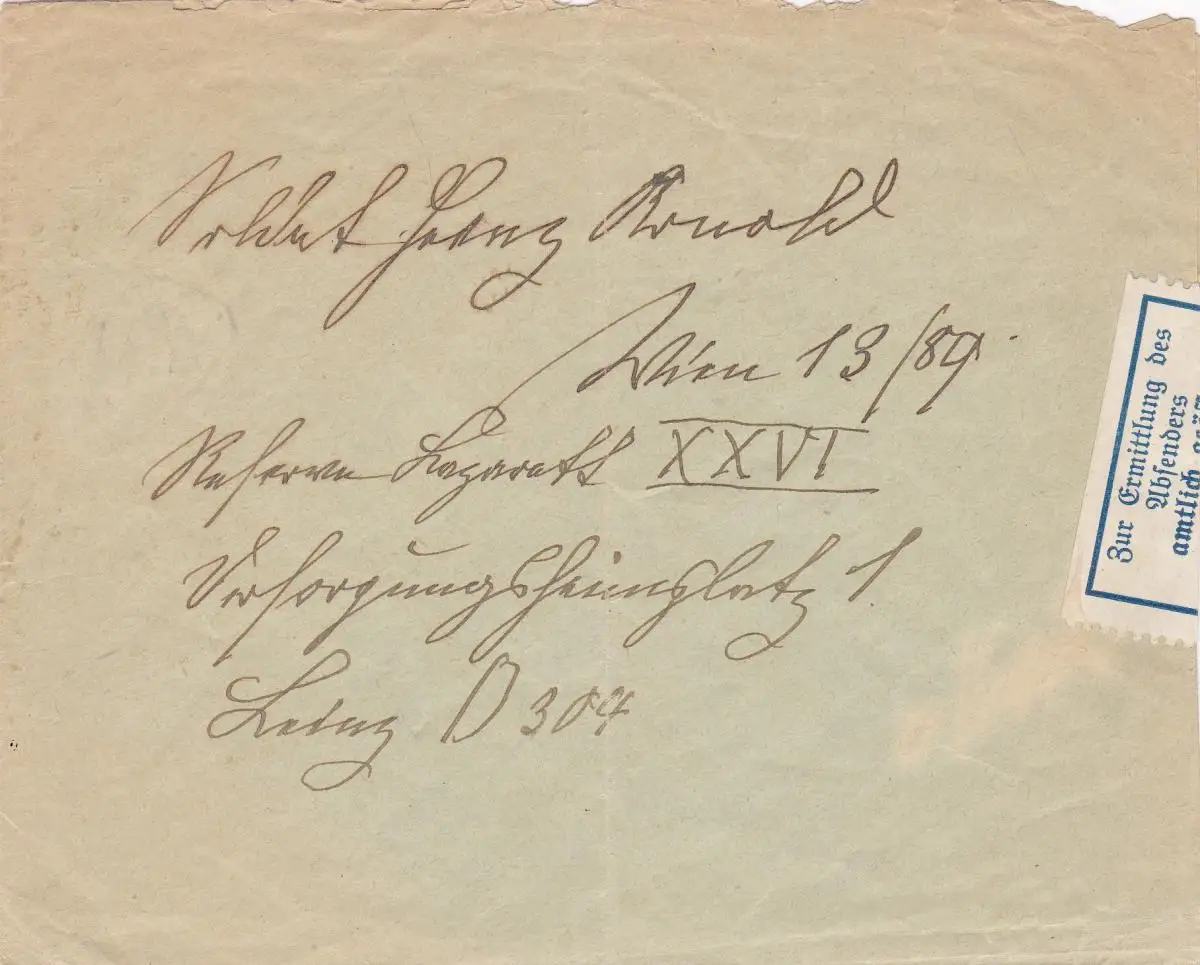 Soldat Franz Arnold
Wien 13/89
Reserve Lazarett XXVI
Versorgungsheimplatz 1
Leinz B 304
Zur Ermittlung des
Absenders
amtlich